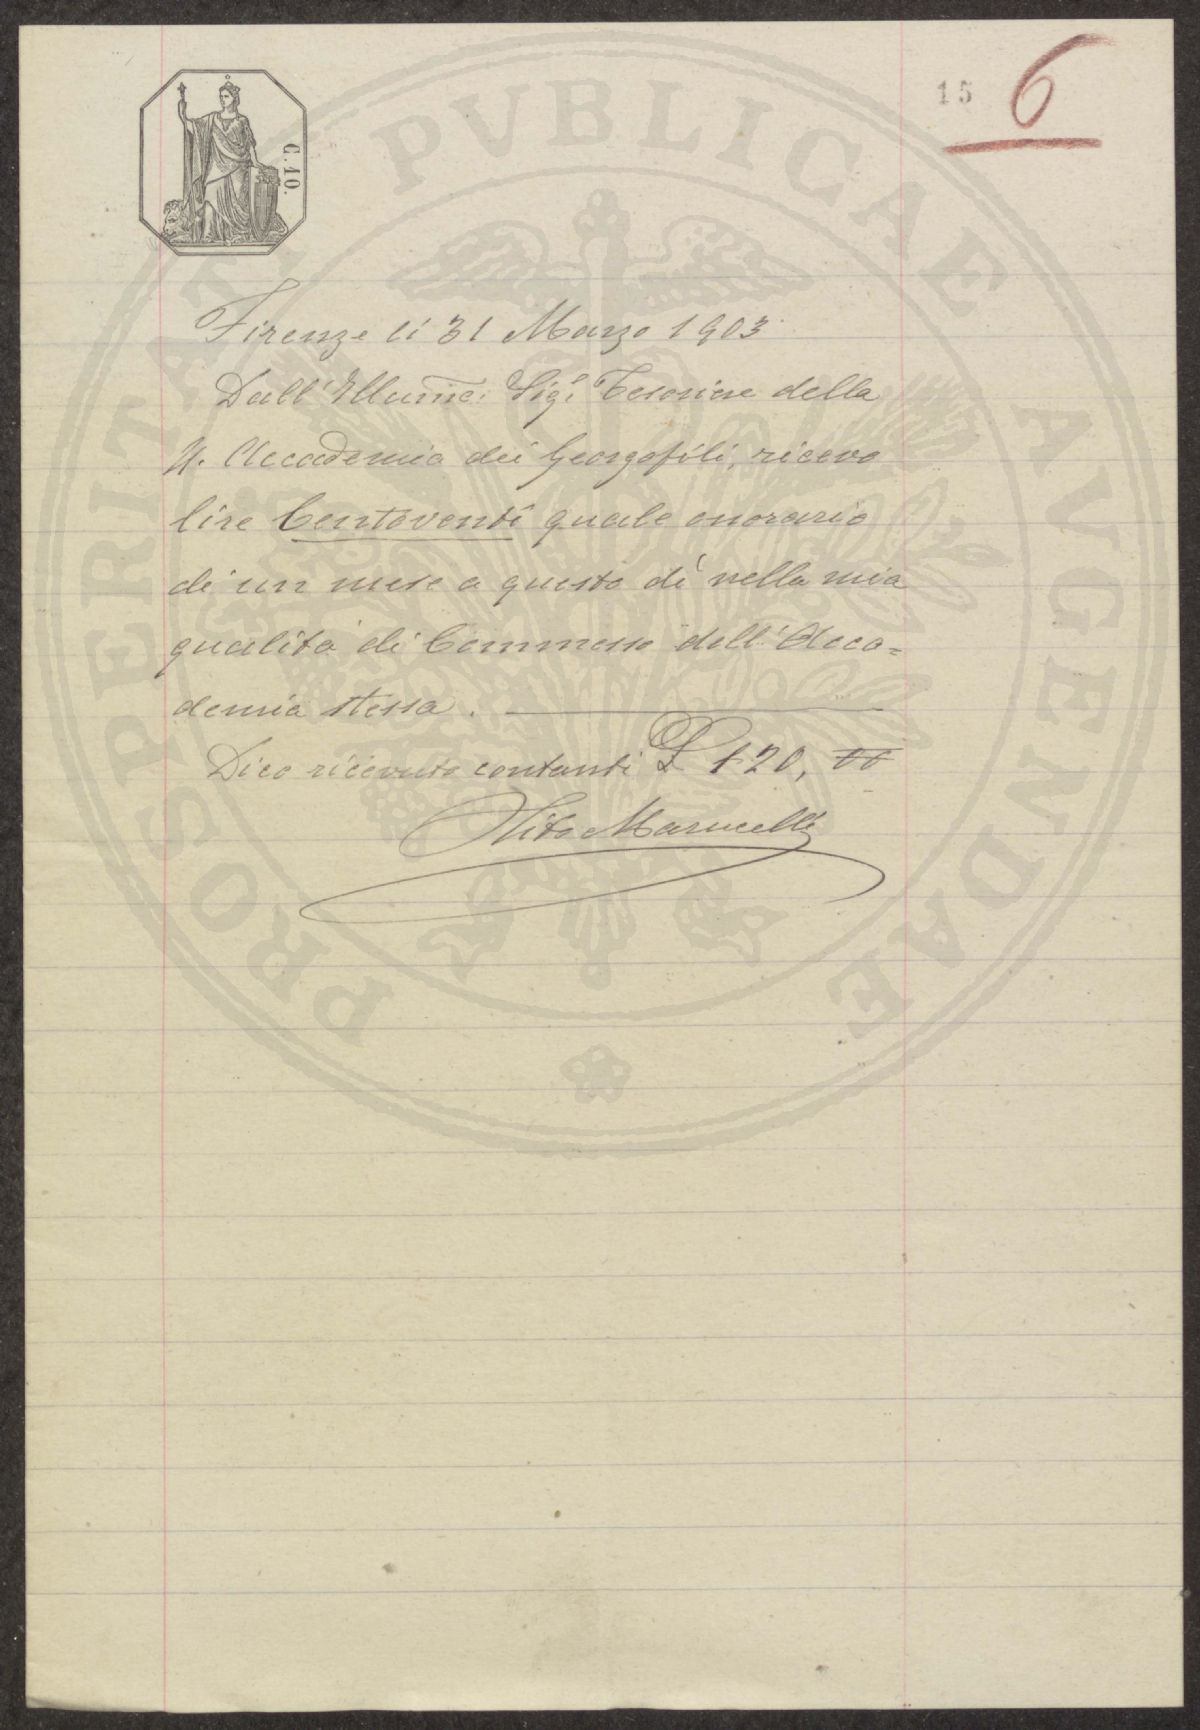 C. 10.
15
6
Firenze li 31 Marzo 1903
Dall' Illumo: Sigr Tesoriere della
R. Accademia dei Georgofili, ricevo
lire Centoventi quale onorario
di un mese a questo dì nella mia
qualità di Commesso dell' Acca=
demia stessa.
Dico ricevuto contanti £ 120, 00
Marucelli
PROSPERITATI PVBLICAE AVGENDAE